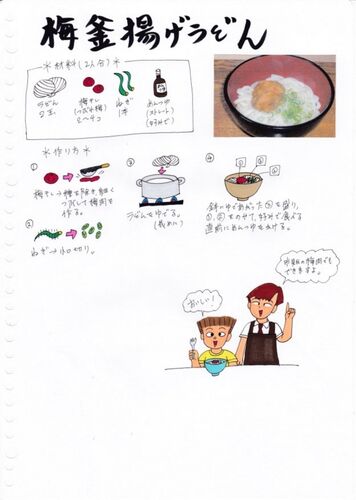 梅釜揚げうどん
*材料(2人分)*
うどん
2玉
梅干し
(つぶれ梅)
2〜4コ
ねぎ
1本
めんつゆ
(ストレート)
(好みで)
*作り方*
①
梅干しの種を除き、細く
つぶして梅肉を
作る。
②
ねぎ→小口切り。
③
うどんをゆでる。
(長めに)
④
①②
③
鉢にゆであがった③を盛り、
①、②をのせて、好みで食べる
直前にめんつゆをかける。
おいしい!
市販の梅肉でも
できますよ。